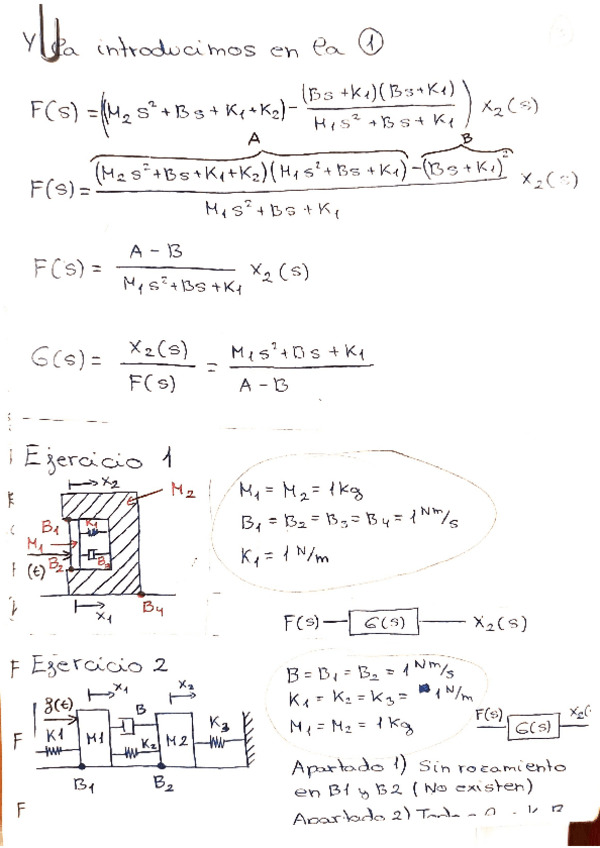 Y la introducimos en la ①
F(s) = (M2 s² + Bs + K1 + K2) - (Bs + K1)(Bs + K1) / M1 s² + Bs + K1) X2(s)
A B
F(s) = (M2 s² + Bs + K1 + K2)(M1 s² + Bs + K1) - (Bs + K1)² / M1 s² + Bs + K1 X2(s)
F(s) = A - B / M1 s² + Bs + K1 X2(s)
G(s) = X2(s) / F(s) = M1 s² + Bs + K1 / A - B
Ejercicio 1
X2
M2
B1 K1
M1
B2 B3
(t)
X1
B4
M1 = M2 = 1 Kg
B1 = B2 = B3 = B4 = 1 Nm/s
K1 = 1 N/m
F(s) G(s) X2(s)
F Ejercicio 2
X1 X2
f(t) B
K1 M1 K2 M2 K3
B1 B2
B = B1 = B2 = 1 Nm/s
K1 = K2 = K3 = 1 N/m
M1 = M2 = 1 Kg
F(s) G(s) X2(
Apartado 1) Sin rozamiento
en B1 y B2 (No existen)
Apartado 2)
F
F